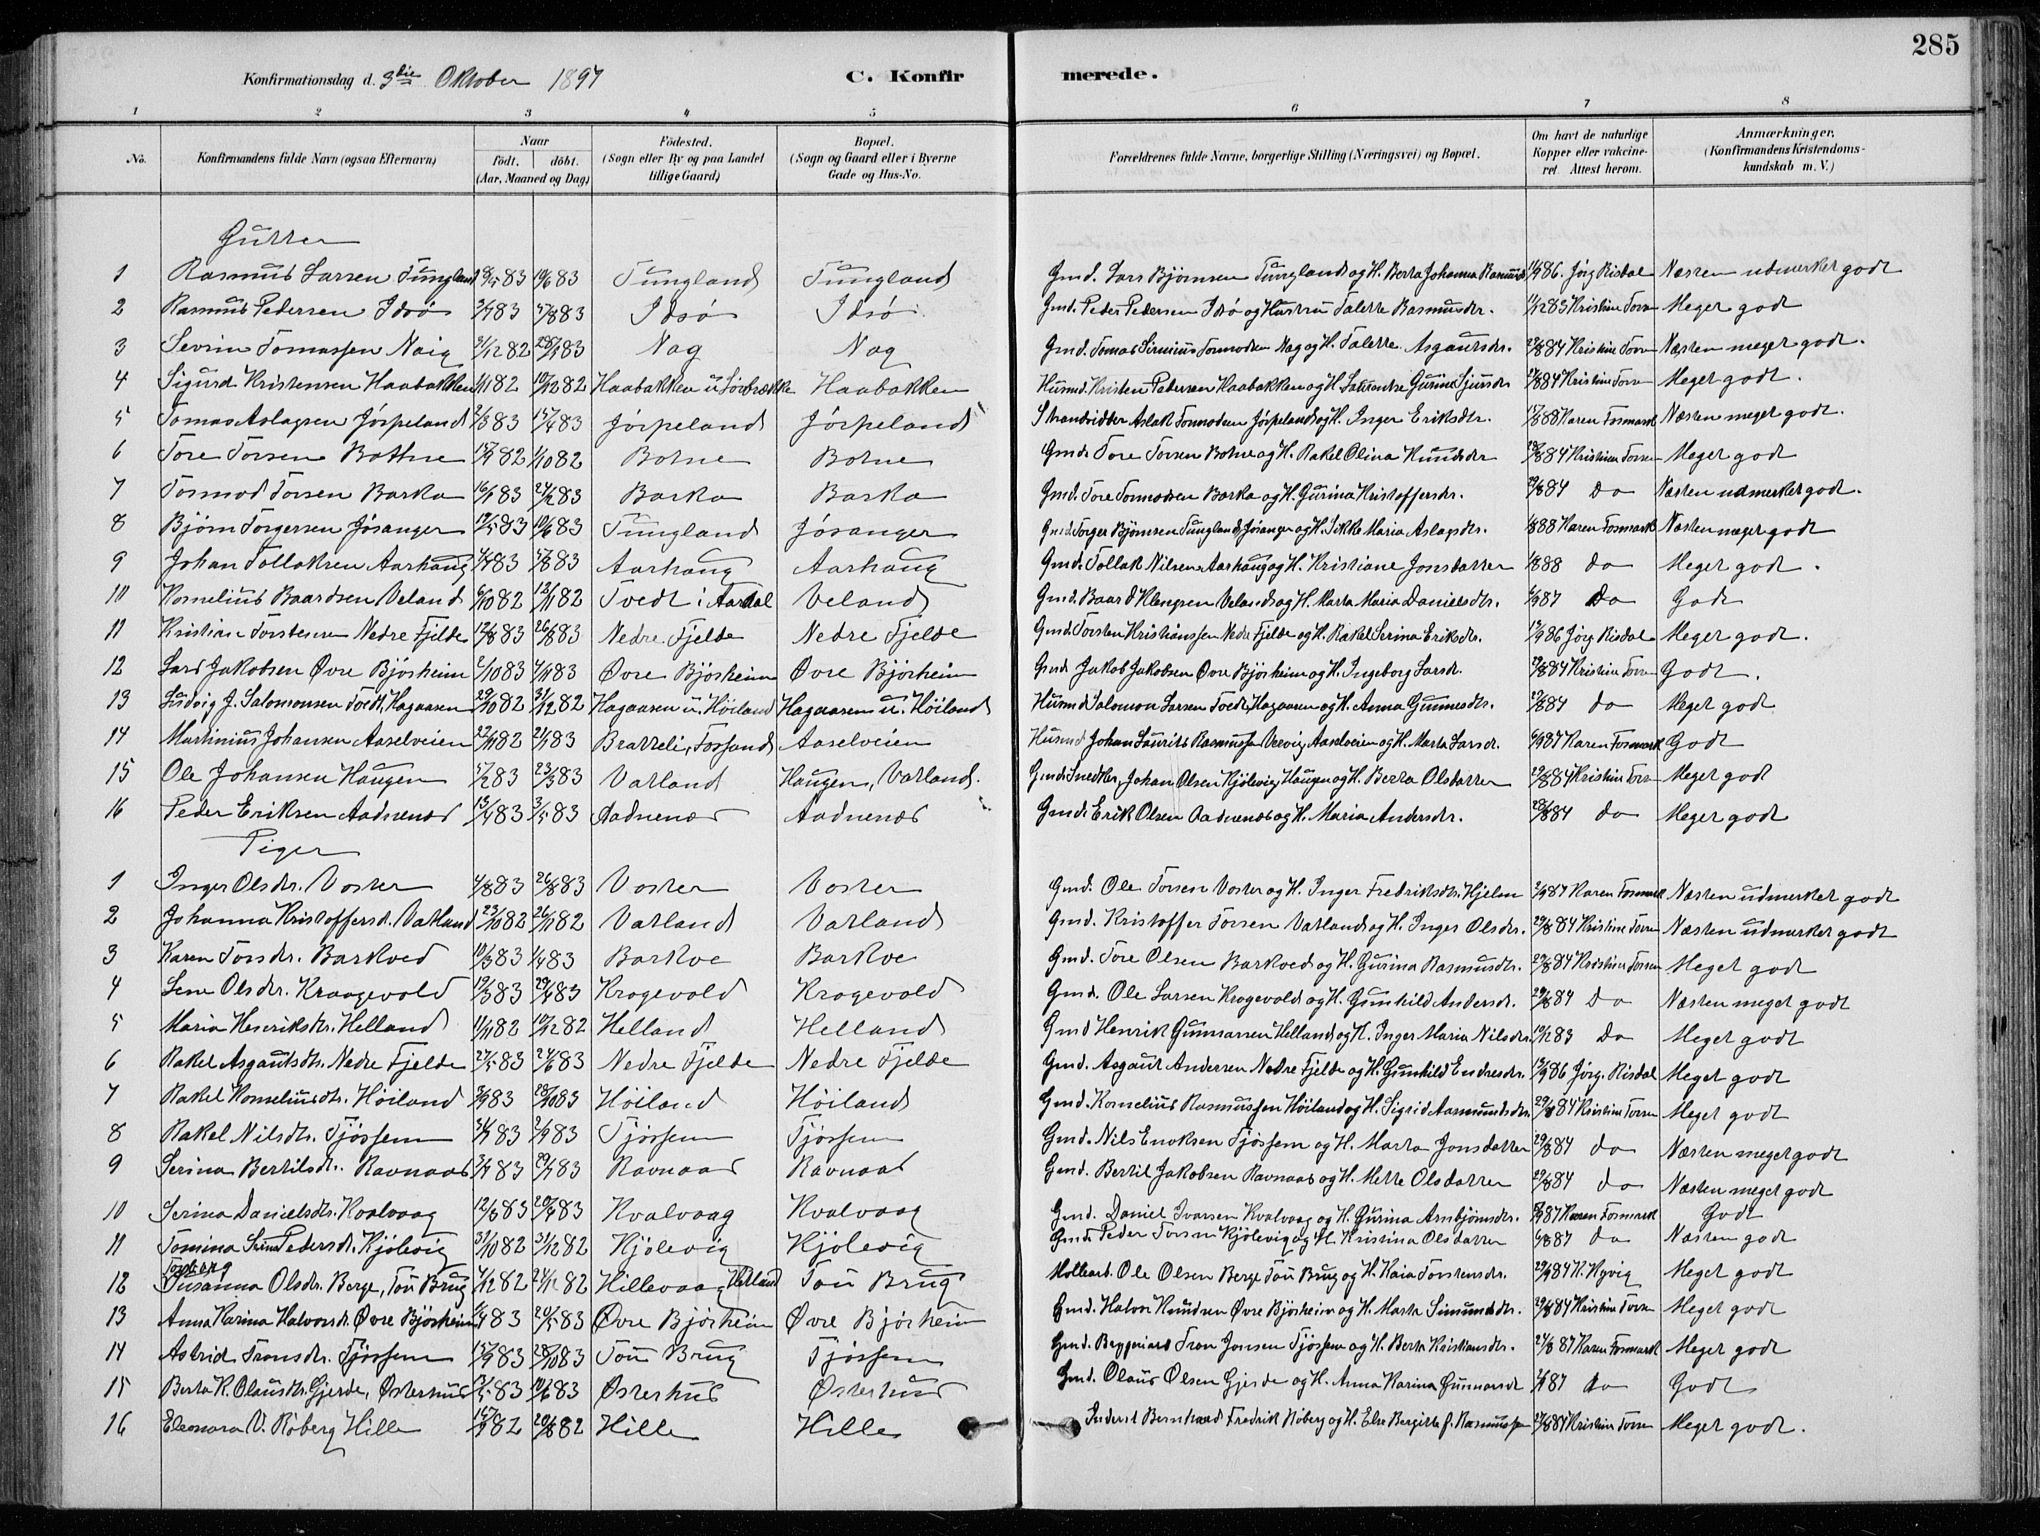 285
Konfirmationsdag d. 3die Oktober 1897 C. Konfirmerede.
1 2 3 4 5 6 7 8
No. Konfirmandens fulde Navn (ogsaa Efternavn) Naar født. døbt. (Aar, Maaned og Dag) Fødested. (Sogn eller By og paa Landet tillige Gaard) Bopæl. (Sogn og Gaard eller i Byerne Gade og Hus-No. Forældrenes fulde Navne, borgerlige Stilling (Næringsvei) og Bopæl. Om havt de naturlige Kopper eller vakcineret. Attest herom. Anmærkninger. (Konfirmandens Kristendomskundskab m. V.)
Gutter
1 Rasmus Larsen Tungland 83 10/6 83 Tungland Tungland Gmd. Lars Bjørnsen Tungland og H. Berta Johanna Rasmusd 86. Jörg Risdal Næsten udmerket godt
2 Rasmus Pedersen Idsö 83 83 Idsö Idsö Gmd. Peder Pedersen Idsö og Hustru Talette Rasmusdtr. 83 Kristine Torsen Meget godt
3 Sevrin Tomassen Nag 31/12 82 83 Nag Nag Gmd. Tomas Tormodsen Nag og H. Talette Asgautsdtr. 84 Kristine Torsen Næsten meget godt.
4 Sigurd Kristensen Haabakken 82 82 Haabakken u. Haabakken Husmd. Kristen Pedersen Haabakken og H. Gurine Sjursdtr 84 Kristine Torsen Meget godt.
5 Tomas Aslagsen Jörpeland 83 15/4 83 Jörpeland Jörpeland Strandsidder Aslak Tormodsen Jörpeland og H. Inger Eriksdtr. 88 Karen Fosmark Næsten meget godt.
6 Tore Torsen Botne 82 1/10 82 Botne Botne Gmd. Tore Torsen Botne og H. Rakel Olina Knudsdtr 84 Kristine Torsen Meget godt
7 Tormod Torsen Barka 16/1 83 83 Barka Barka Gmd. Tore Tormodsen Barka og H. Gurina Kristoffersdtr. 84 do Næsten udmerket godt.
8 Bjørn Torgersen Jösanger 83 10/6 83 Tungland Jösanger Gmd. Torger Bjørnsen Tungland, Jösanger og H. Sikke Maria Aslagsdtr. 88 Karen Fosmark Næsten meget godt
9 Johan Tollaksen Aarhaug 83 83 Aarhaug Aarhaug Gmd. Tollak Nilsen Aarhaug og H. Kristiane Jonsdatter 88 do Meget godt.
10 Kornelius Baardsen Veland 6/10 82 12/11 82 Tvedt i Aardal Veland Gmd. Baard Klengsen Veland og H. Marta Maria Danielsdtr. 87 do Godt
11 Kristian Torstensen Nedre Fjelde 12/8 83 26/8 83 Nedre Fjelde Nedre Fjelde Gmd. Torsten Kristianssen Nedre Fjelde og H. Rakel Serina Eriksdtr. 86 Jörg Risdal Meget godt.
12 Lars Jakobsen Övre Björheim 83 83 Övre Björheim Övre Björheim Gmd. Jakob Jakobsen Övre Björheim og H. Ingeborg Larsdt. 84 Kristine Torsen Godt.
13 Ludvig J. Salomonsen Tvedt, Hagaasen 29/10 82 31/12 82 Hagaasen u. Höiland Hagaasen u. Höiland Husmd Salomon Larsen Tvedt, Hagaasen og H. Anna Gunnesdtr. 84 do Meget godt
14 Martinius Johansen Aaselveien 22/11 82 83 Bratteli, Fossand Aaselveien Husmd Johan Laurits Rasmussen Aaselveien og H. Marta Larsdt. 87 Karen Fosmark Godt
15 Ole Johansen Haugen 83 83 Vatland Haugen, Vatland. Gmd. Snedker, Johan Olsen Kjölevig, Haugen og H. Berta Olsdatter 84 Kristine Torsen Meget godt
16 Peder Eriksen Aadnenæs 13/4 83 3/5 83 Aadnenæs Aadnenæs Gmd. Erik Olsen Aadnenæs og H. Maria Andersdtr. 84 do Meget godt
Piger
1 Inger Olsdtr. Voster 4/8 83 26/8 83 Voster Voster Gmd. Ole Torsen Voster og H. Inger Fredriksdtr. Hjelm 87 Karen Fosmark Næsten udmerket godt
2 Johanna Kristoffersd. Vatland 23/10 82 26/11 82 Vatland Vatland Gmd. Kristoffer Torsen Vatland og H. Inger Olsdtr. 84 Kristine Torsen Næsten udmerket godt
3 Karen Torsdtr. Barkved 10/3 83 83 Barkve Barkve Gmd. Tore Olsen Barkved og H. Gurina Rasmusdtr. 84 Kristine Torsen Meget godt
4 Lene Olsdtr. Kraagevold 83 83 Krogevold Krogevold Gmd. Ole Larsen Krogevold og H. Gunhild Andersdt. 84 do Næsten meget godt
5 Maria Henriksdtr. Helland 82 82 Helland Helland Gmd Henrik Gunnarsen Helland og H. Inger Maria Nilsdtr. 83 do Meget godt
6 Rakel Asgautsdtr. Nedre Fjelde 83 24/6 83 Nedre Fjelde Nedre Fjelde Gmd. Asgaut Andersen Nedre Fjelde og H. Gunhild Endresdtr. 86 Jörg. Risdal Meget godt
7 Rakel Korneliusdtr. Höiland 83 28/10 83 Höiland Höiland Gmd. Kornelius Rasmussen Höiland og H. Sigrid Aasmundsdtr. 84 Kristine Torsen Meget godt
8 Rakel Nilsdtr. Tjössem 83 83 Tjössem Tjössem Gmd. Nils Enoksen Tjössem og H. Marta Jonsdatter 84 do Næsten meget godt
9 Serina Bertilsdtr. Ravnaas 83 83 Ravnaas Ravnaas Gmd. Bertil Jakobsen Ravnaas og H. Mette Olsdatter 84 do Næsten meget godt
10 Serina Danielsdtr. Kvalvaag 83 83 Kvalvaag Kvalvaag Gmd. Daniel Ivarsen Kvalvaag og H. Gurina Arnbjörnsdtr. 87 Karen Fosmark Godt
11 Tomina Serine Pedersdt. Kjölevig 31/10 82 31/12 82 Kjölevig Kjölevig Gmd. Peder Torsen Kjölevig og H. Kristina Olsdatter 87 do Næsten godt
12 Torborg Susanna Olsdtr. Berge, Tou Brug 82 82 Hillevaag Hetland Tou Brug Ole Olsen Berge Tou Brug og H. Kaia Torstensdtr. 84 K. Nyvig Meget godt
13 Anna Karina Halvorsdt. Övre Björheim 83 20/5 83 Övre Björheim Övre Björheim Gmd. Halvor Knudsen Övre Björheim og H. Marta Simunsdtr. 84 Kristine Torsen Meget godt
14 Astrid Tronsdtr. Tjössem 83 28/10 83 Tou Brug Tjössem Gmd. Tron Jonsen Tjössem og H. Berta Kristiansdtr. 87 Karen Fosmark Meget godt
15 Berta K. Olausdtr. Gjerde, Österhus 83 10/6 83 Österhus Österhus Gmd. Olaus Olsen Gjerde og H. Anna Karina Gunnarsdt 87 do Godt
16 Eleonora V. Röberg Hille 82 82 Hille Hille Bernhard Fredrik Röberg og H. Else Bergitte f. Rasmussen 84 Kristine Torsen Meget godt.